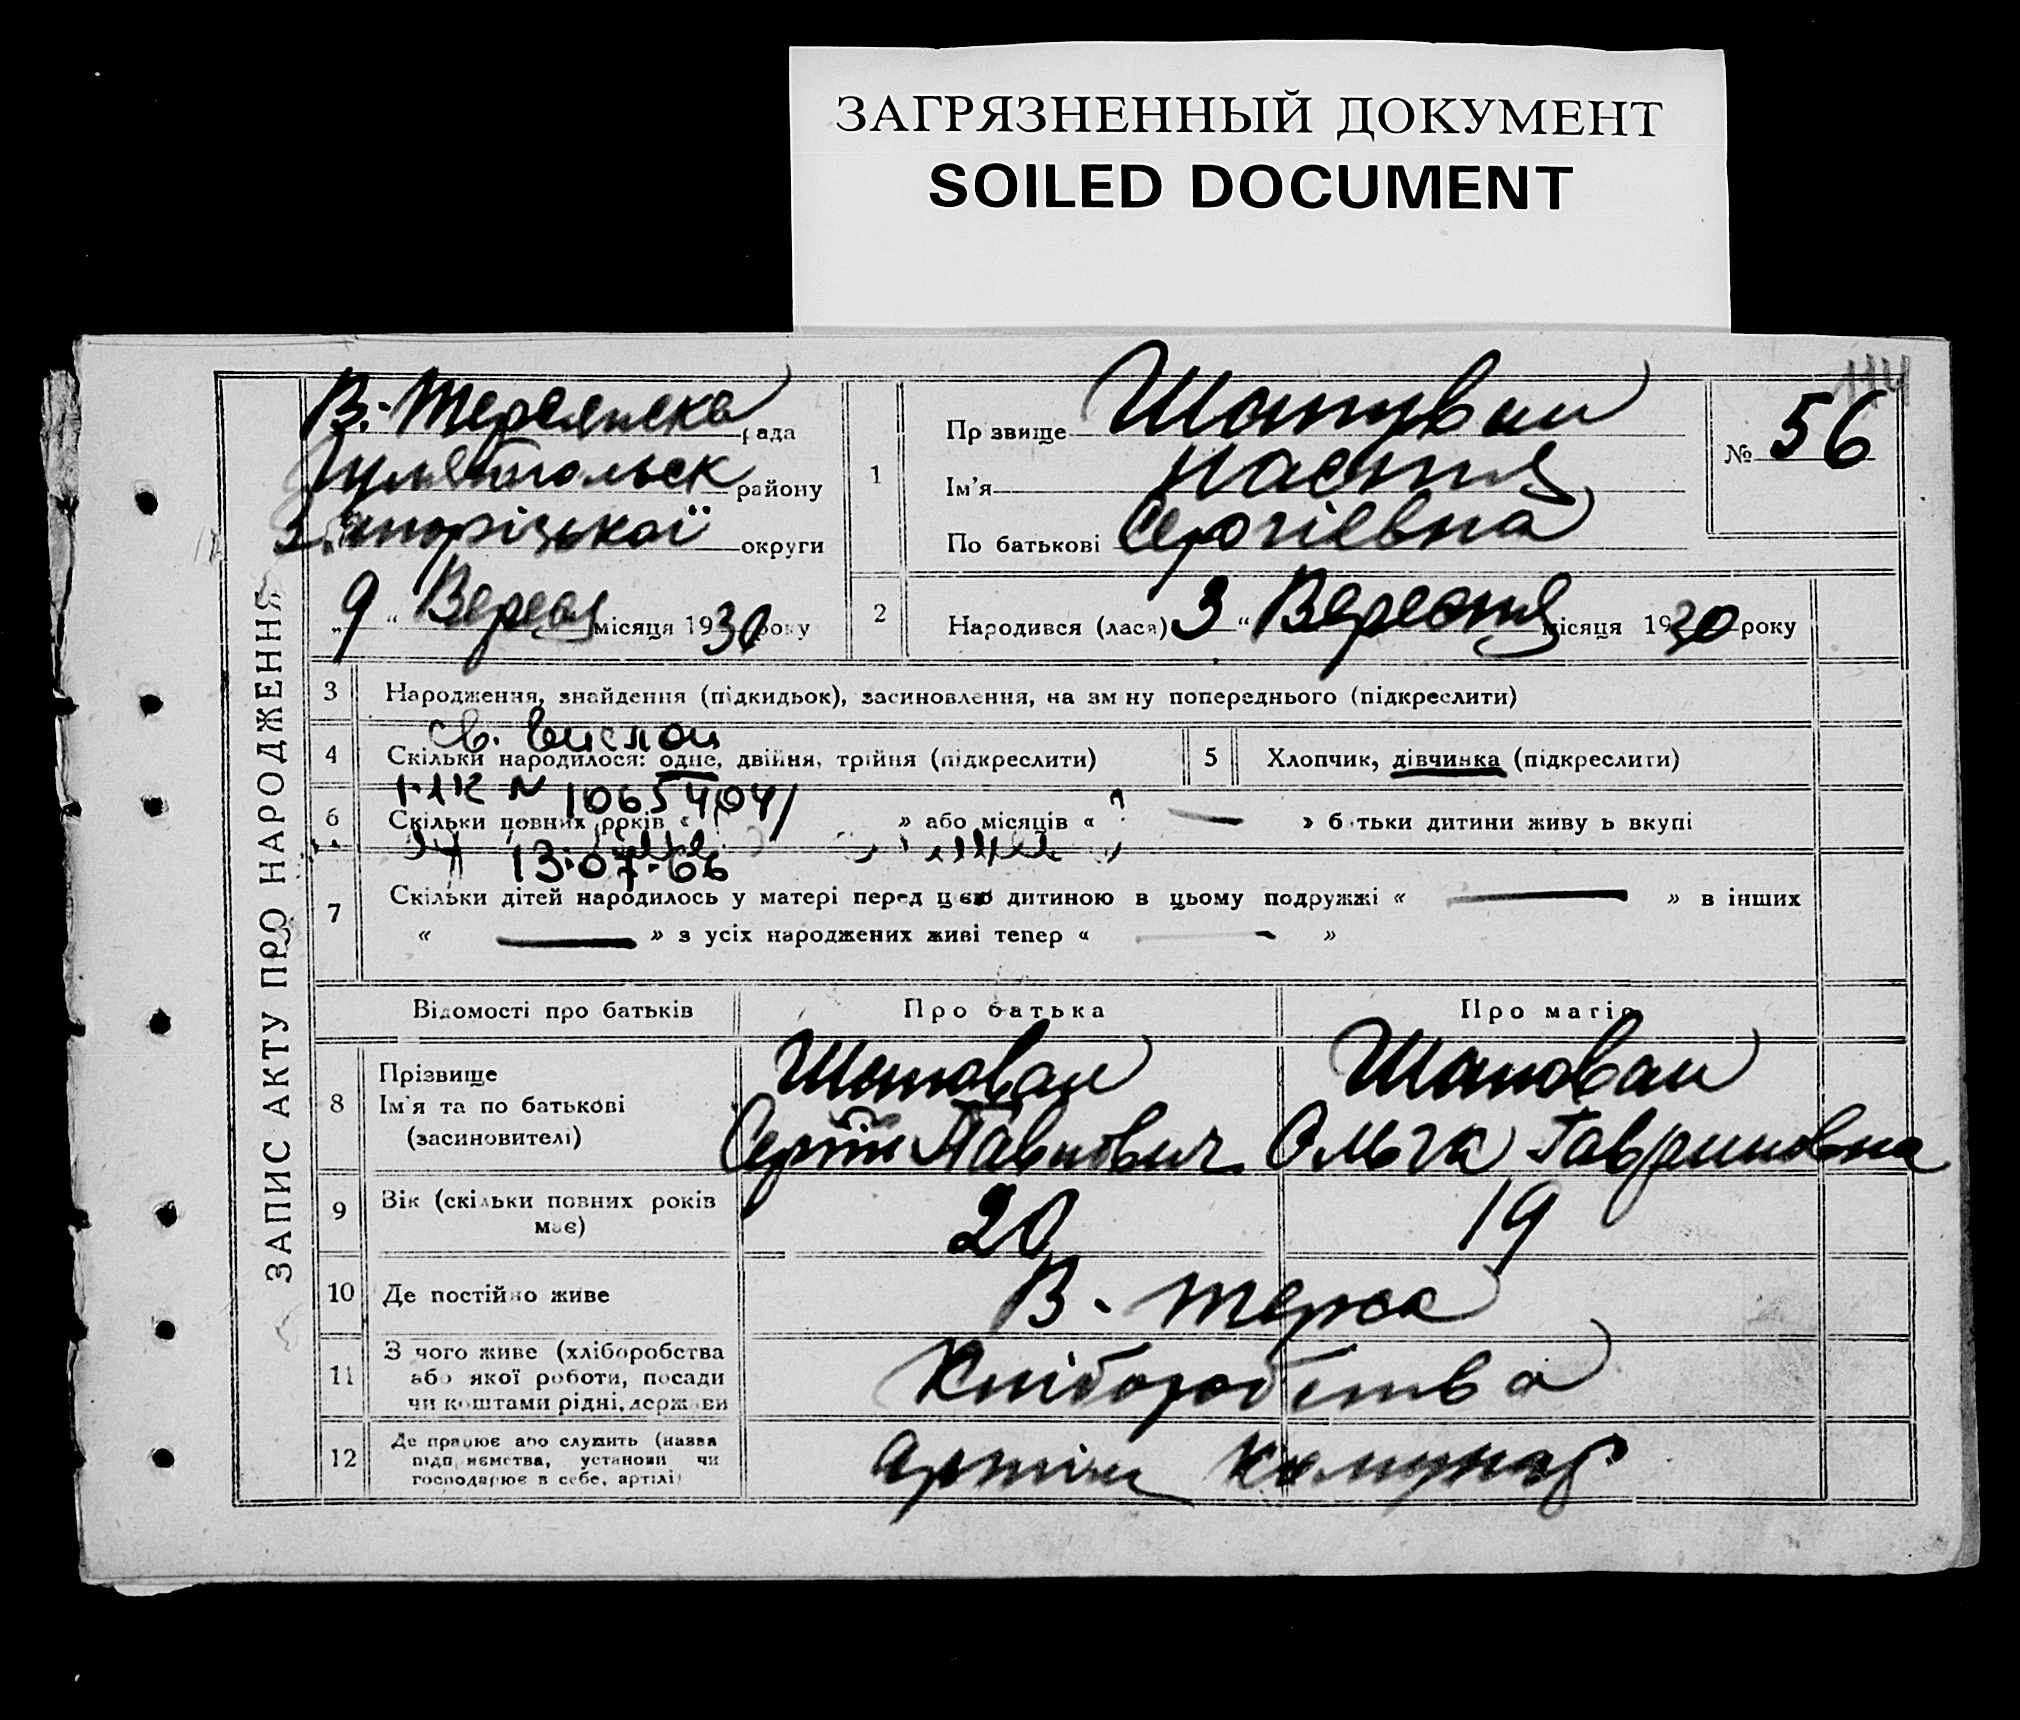 ЗАГРЯЗНЕННЫЙ ДОКУМЕНТ
SOILED DOCUMENT
ЗАПИС АКТУ ПРО НАРОДЖЕННЯ
В.-Терсянська рада
Гуляйпольськ району
Запорізької округи
„9“ Вересня місяця 1930 року
1
Прізвище Шаповал
Ім'я Настя
По батькові Сергіевна
№ 56
2
Народився (лася) 3 “ Вересня місяця 1930 року
3 Народження, знайдення (підкидьок), засиновлення, на зміну попереднього (підкреслити)
св. выслан
4 Скільки народилося: одне, двійня, трійня (підкреслити)
5 Хлопчик, дівчинка (підкреслити)
N 1065404
6 Скільки повних років « » або місяців « — » батьки дитини живуть вкупі
13.07.66
7 Скільки дітей народилось у матері перед цією дитиною в цьому подружжі « — » в інших
« — » з усіх народжених живі тепер « — »
Відомості про батьків Про батька Про матір
8 Прізвище
Ім'я та по батькові
(засиновителі)
Шаповал
Сергій Павлович
Шаповал
Ольга Гавриловна
9 Вік (скільки повних років
має)
20 19
10 Де постійно живе В-Терса
11 З чого живе (хліборобства
або якої роботи, посади
чи коштами рідні, держави
Хліборобства
12 Де працює або служить (назва
підприємства, установи чи
господарює в себе, артілі)
Артіль Комунар